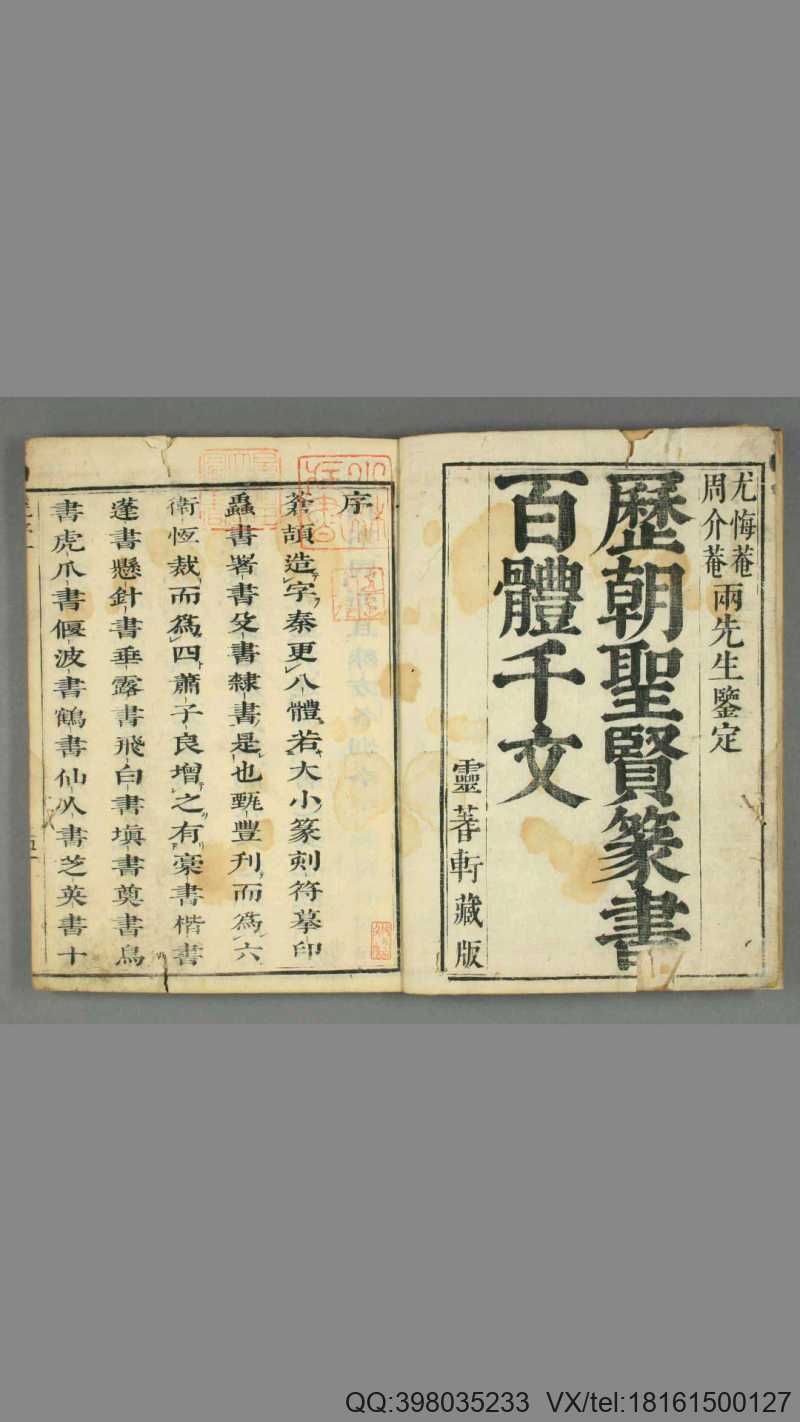 尤悔菴
周介菴
兩先生鑒定
歷朝聖賢篆書
百體千文
靈菨軒藏版
序
蒼頡造字秦更八體若大小篆刻符摹印
蟲書署書殳書隸書是也甄豐刋而爲六
衛恆裁而爲四蕭子良增之有槀書楷書
蓬書懸針書垂露書飛白書塡書奠書鳥
書虎爪書偃波書鶴書仙人書芝英書十
QQ:398035233 VX/tel:18161500127